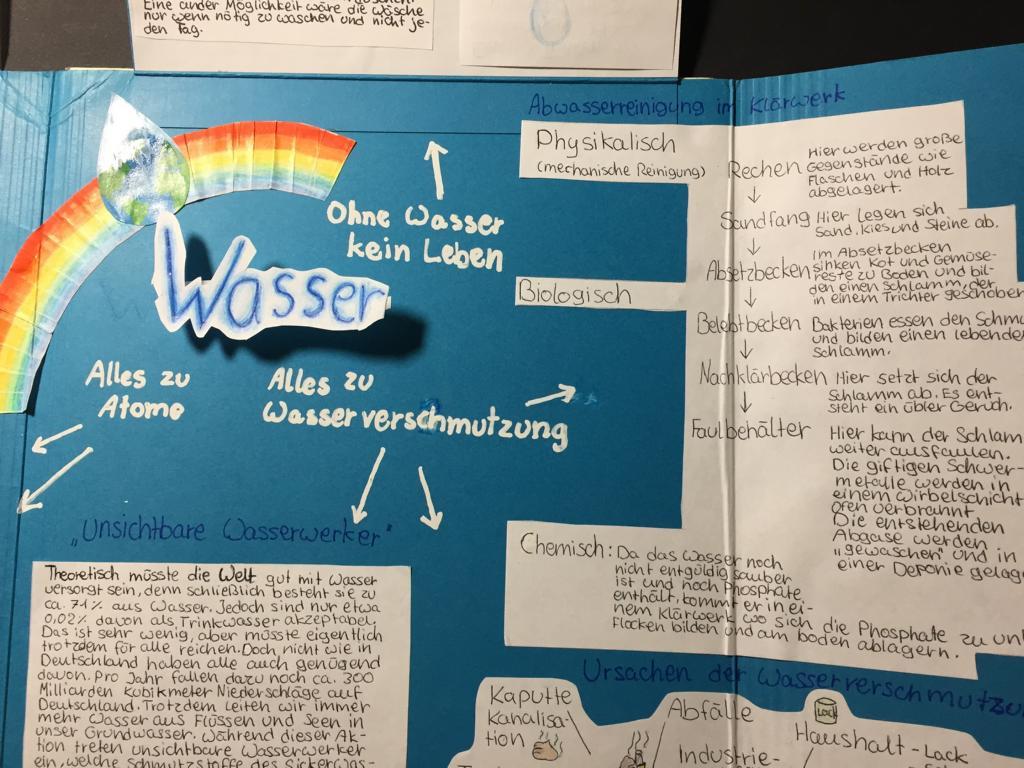 Eine ander Möglichkeit wäre die Wäsche
nur wenn nötig zu waschen und nicht je-
den Tag.
Wasser
Ohne Wasser
kein Leben
Alles zu
Atome
Alles zu
Wasserverschmutzung
„Unsichtbare Wasserwerker"
Theoretisch müsste die Welt gut mit Wasser
versorgt sein, denn schließlich besteht sie zu
ca. 71% aus Wasser. Jedoch sind nur etwa
0,02% davon als Trinkwasser akzeptabel.
Das ist sehr wenig, aber müsste eigentlich
trotzdem für alle reichen. Doch nicht wie in
Deutschland haben alle auch genügend
davon. Pro Jahr fallen dazu noch ca. 300
Milliarden Kubikmeter Niederschläge auf
Deutschland. Trotzdem leiten wir immer
mehr Wasser aus Flüssen und Seen in
unser Grundwasser. Während dieser Ak-
tion treten unsichtbare Wasserwerker
ein, welche Schmutzstoffe des Sickerwas-
Abwasserreinigung im Klärwerk
Physikalisch
(mechanische Reinigung)
Rechen
Hier werden große
Gegenstände wie
Flaschen und Holz
abgelagert.
Sandfang
Hier legen sich
Sand, Kies und Steine ab.
Absetzbecken
Im Absetzbecken
sinken Kot und Gemüse-
reste zu Boden und bil-
den einen Schlamm, der
in einem Trichter geschoben
Biologisch
Belebtbecken
Bakterien essen den Schmu
und bilden einen lebenden
Schlamm.
Nachklärbecken
Hier setzt sich der
Schlamm ab. Es ent-
steht ein übler Geruch.
Faulbehälter
Hier kann der Schlam
weiter ausfaulen.
Die giftigen Schwer-
metalle werden in
einem Wirbelschicht
ofen verbrannt
Die entstehenden
Abgase werden
„gewaschen" und in
einer Deponie gelage
Chemisch: Da das Wasser noch
nicht entgüldig sauber
ist und noch Phosphate
enthält, kommt er in ei-
nem Klärwerk wo sich die Phosphate zu unl
Flocken bilden und am boden ablagern.
Ursachen der Wasserverschmutzu
Kaputte
Kanalisa-
tion
Abfälle
Industrie-
LACK
Haushalt - Lack